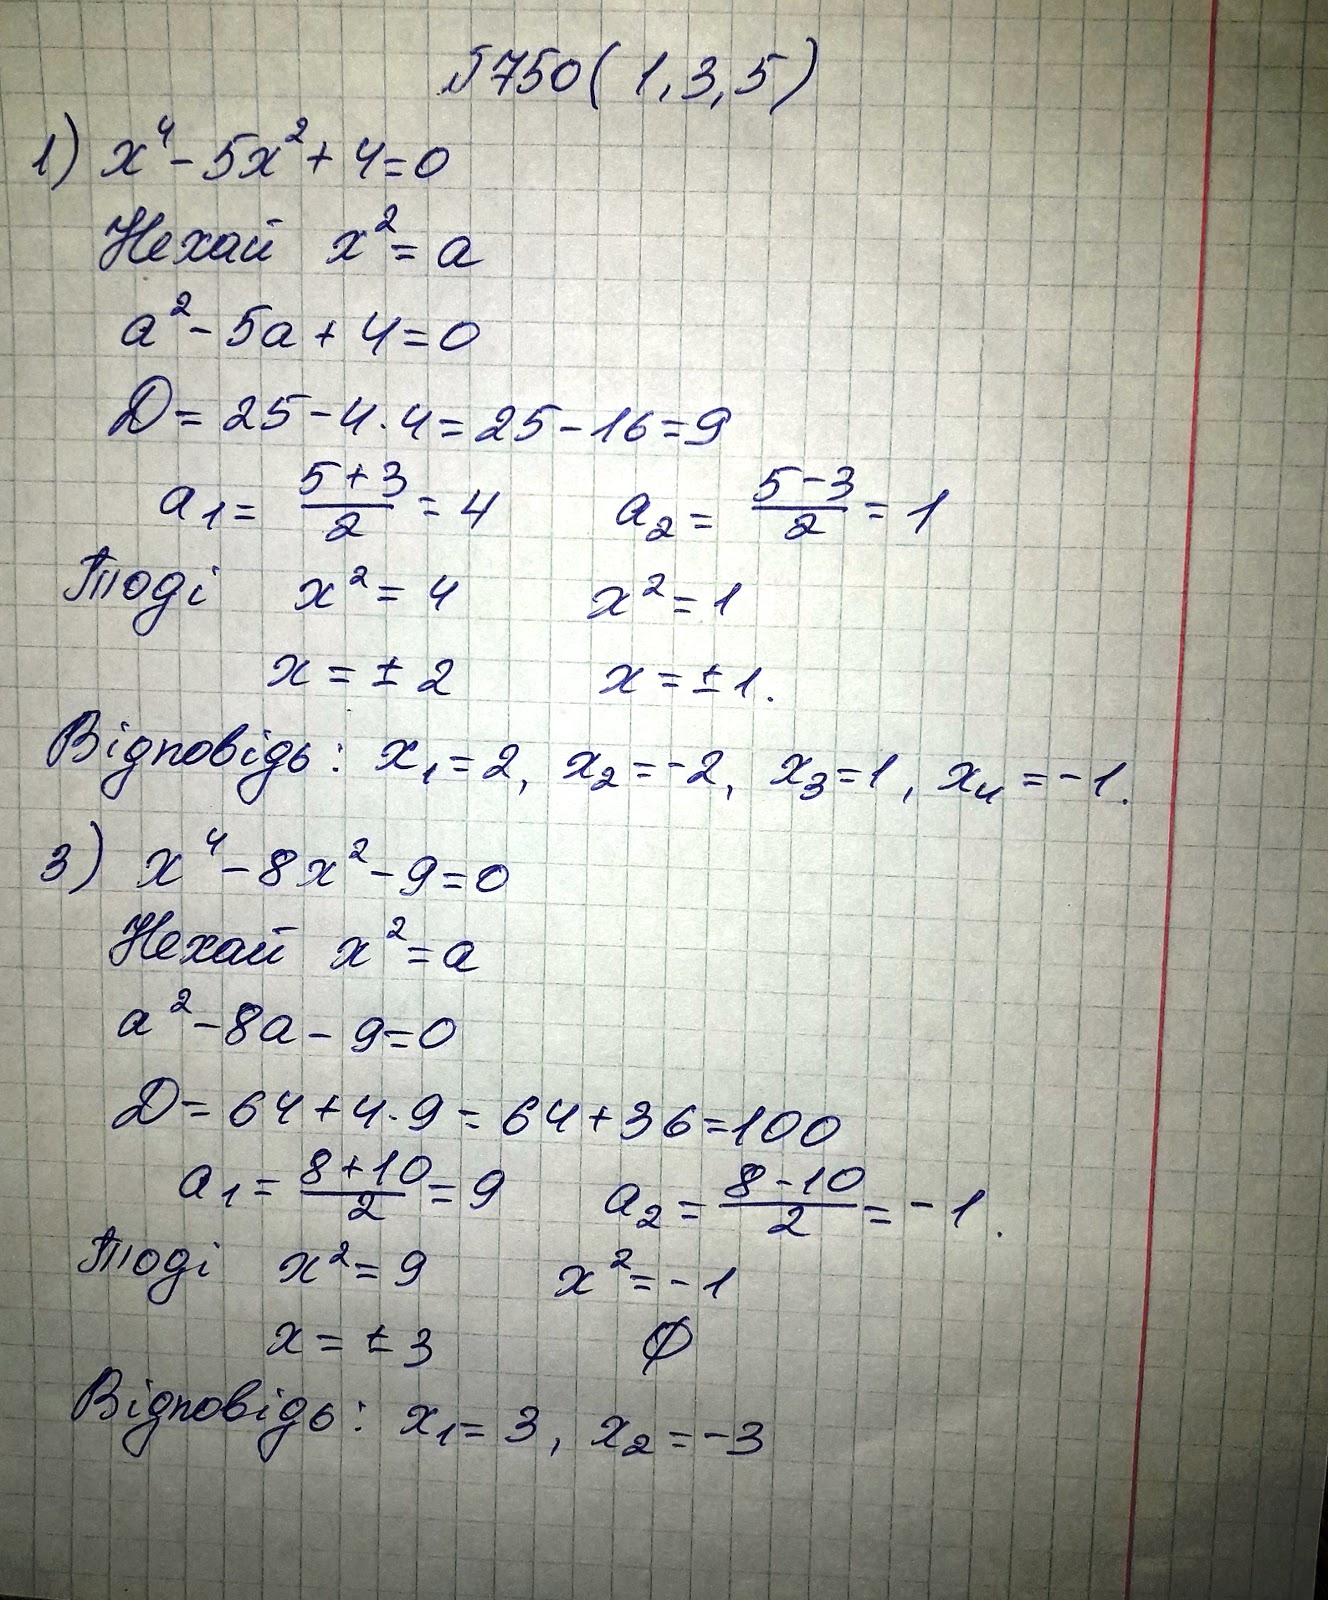 №750(1,3,5)
1) x⁴-5x²+4=0
Нехай x²=a
a²-5a+4=0
D=25-4·4=25-16=9
a₁=(5+3)/2=4 a₂=(5-3)/2=1
Тоді x²=4 x²=1
x=±2 x=±1.
Відповідь: x₁=2, x₂=-2, x₃=1, x₄=-1.
3) x⁴-8x²-9=0
Нехай x²=a
a²-8a-9=0
D=64+4·9=64+36=100
a₁=(8+10)/2=9 a₂=(8-10)/2=-1.
Тоді x²=9 x²=-1
x=±3 ∅
Відповідь: x₁=3, x₂=-3